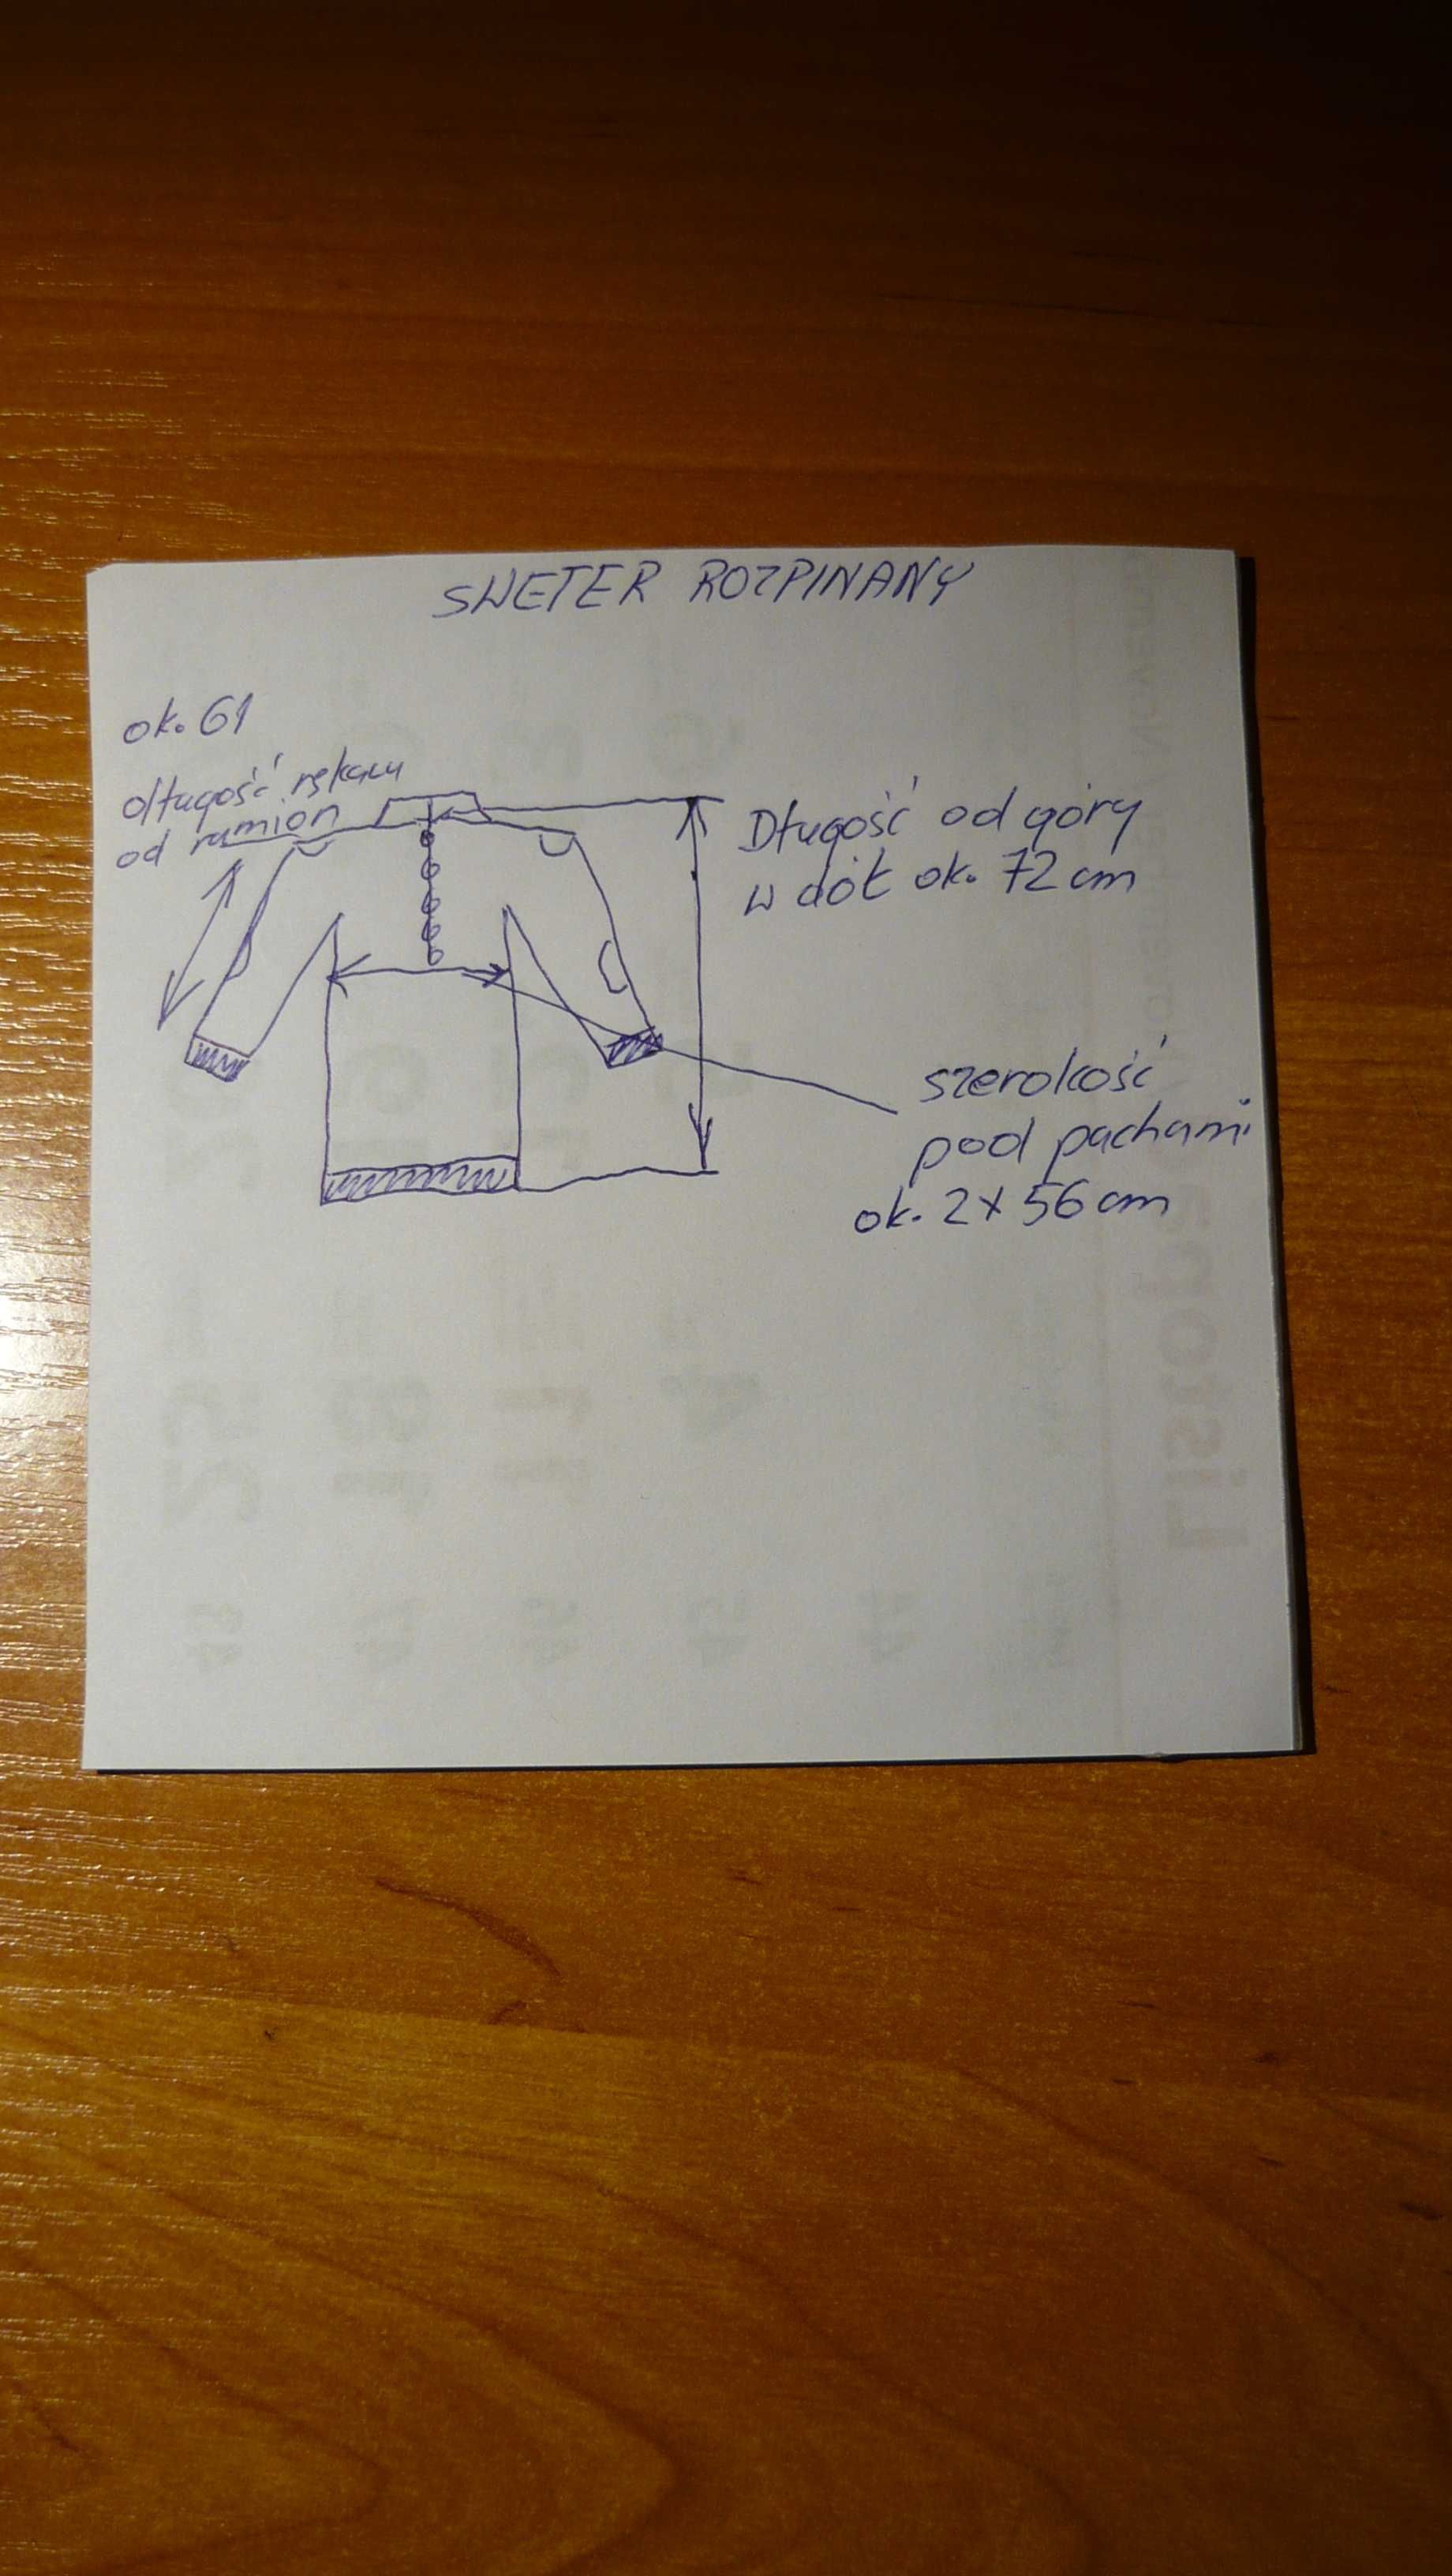 SWETER ROZPINANY
ok. 61
długość rękawu
od ramion
Długość od góry
w dół ok. 72 cm
szerokość
pod pachami
ok. 2x56 cm
Listopa